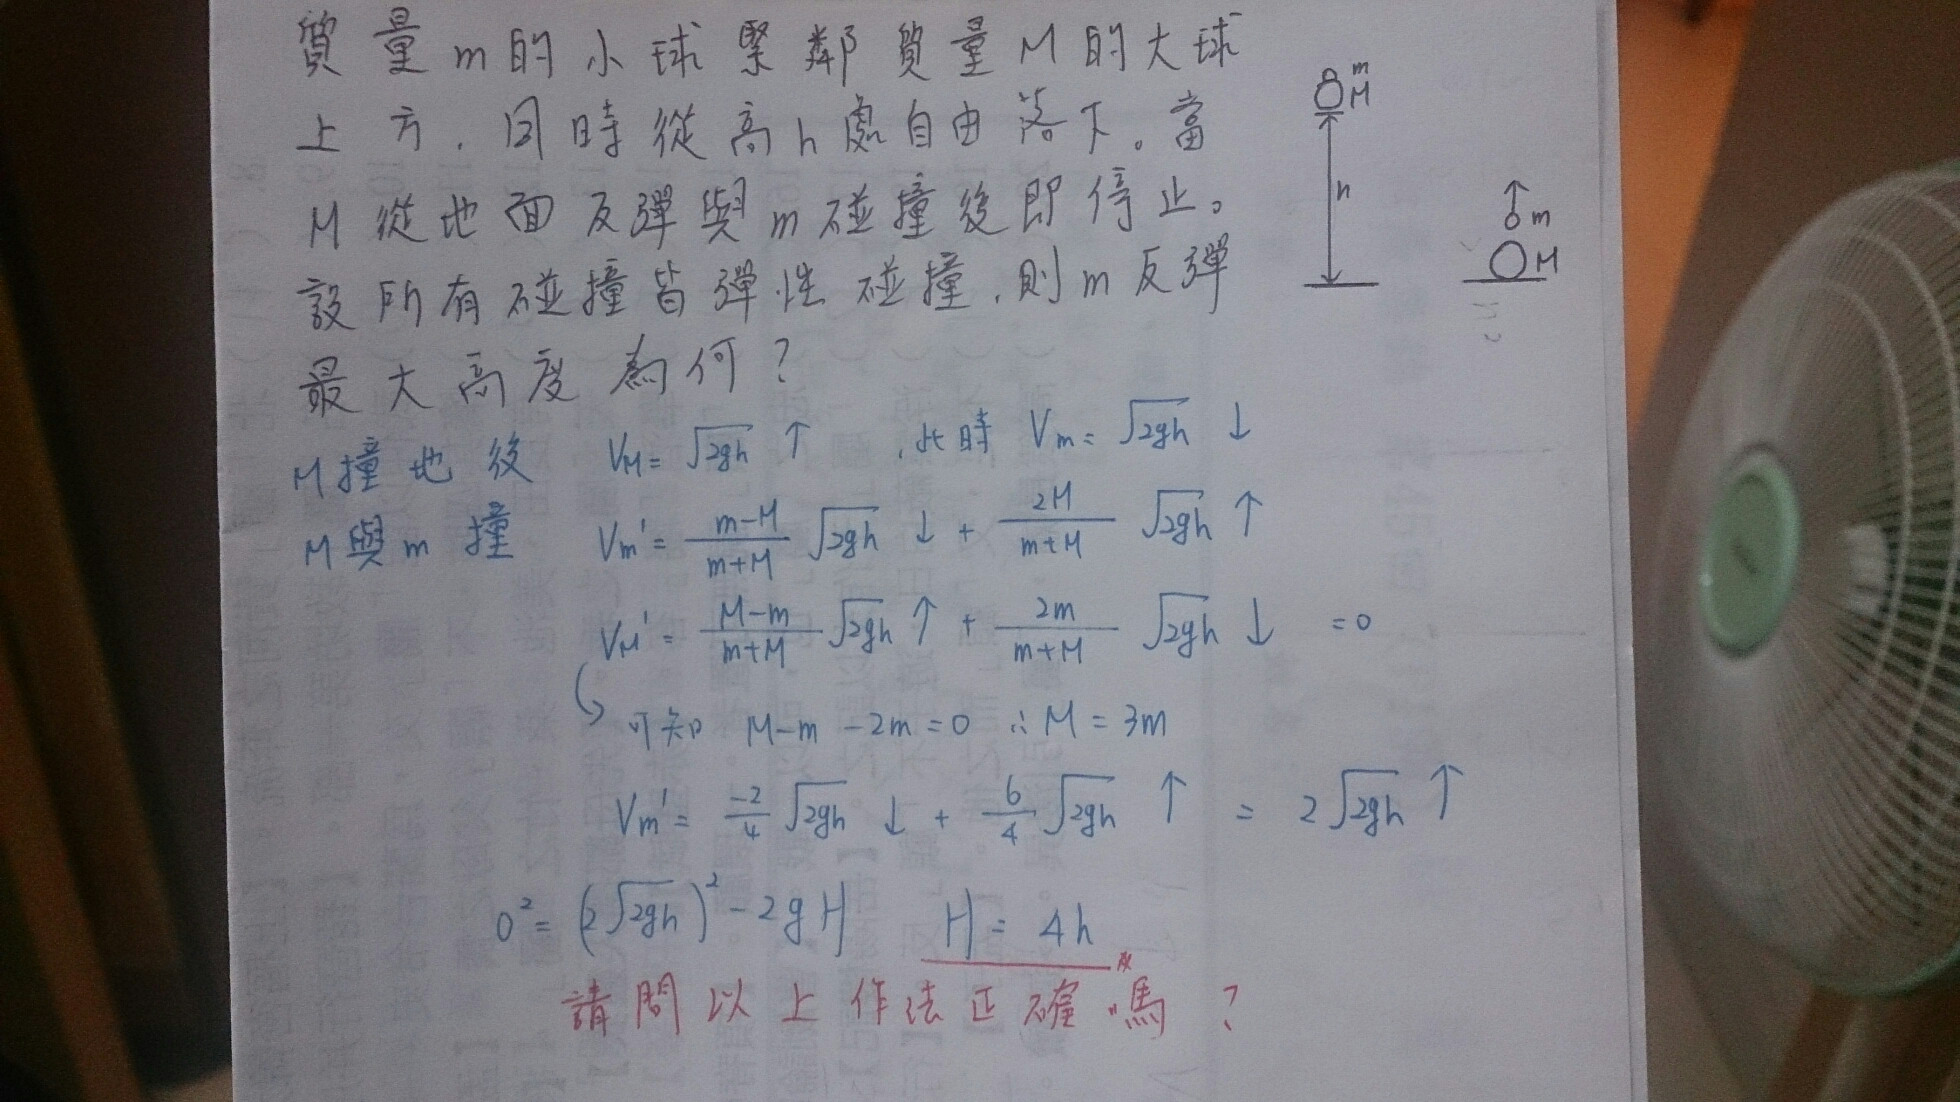 質量m的小球緊鄰質量M的大球
上方,同時從高h處自由落下。當
M從地面反彈與m碰撞後即停止。
設所有碰撞皆彈性碰撞,則m反彈
最大高度為何?
m
M
h
m
M
M撞地後 V_M = √2gh ↑ ,此時 V_m = √2gh ↓
M與m撞 V_m' = (m-M)/(m+M) √2gh ↓ + 2M/(m+M) √2gh ↑
V_M' = (M-m)/(m+M) √2gh ↑ + 2m/(m+M) √2gh ↓ = 0
可知 M-m-2m=0 ∴ M = 3m
V_m' = -2/4 √2gh ↓ + 6/4 √2gh ↑ = 2√2gh ↑
0² = (2√2gh)² - 2gH H = 4h
請問以上作法正確嗎?